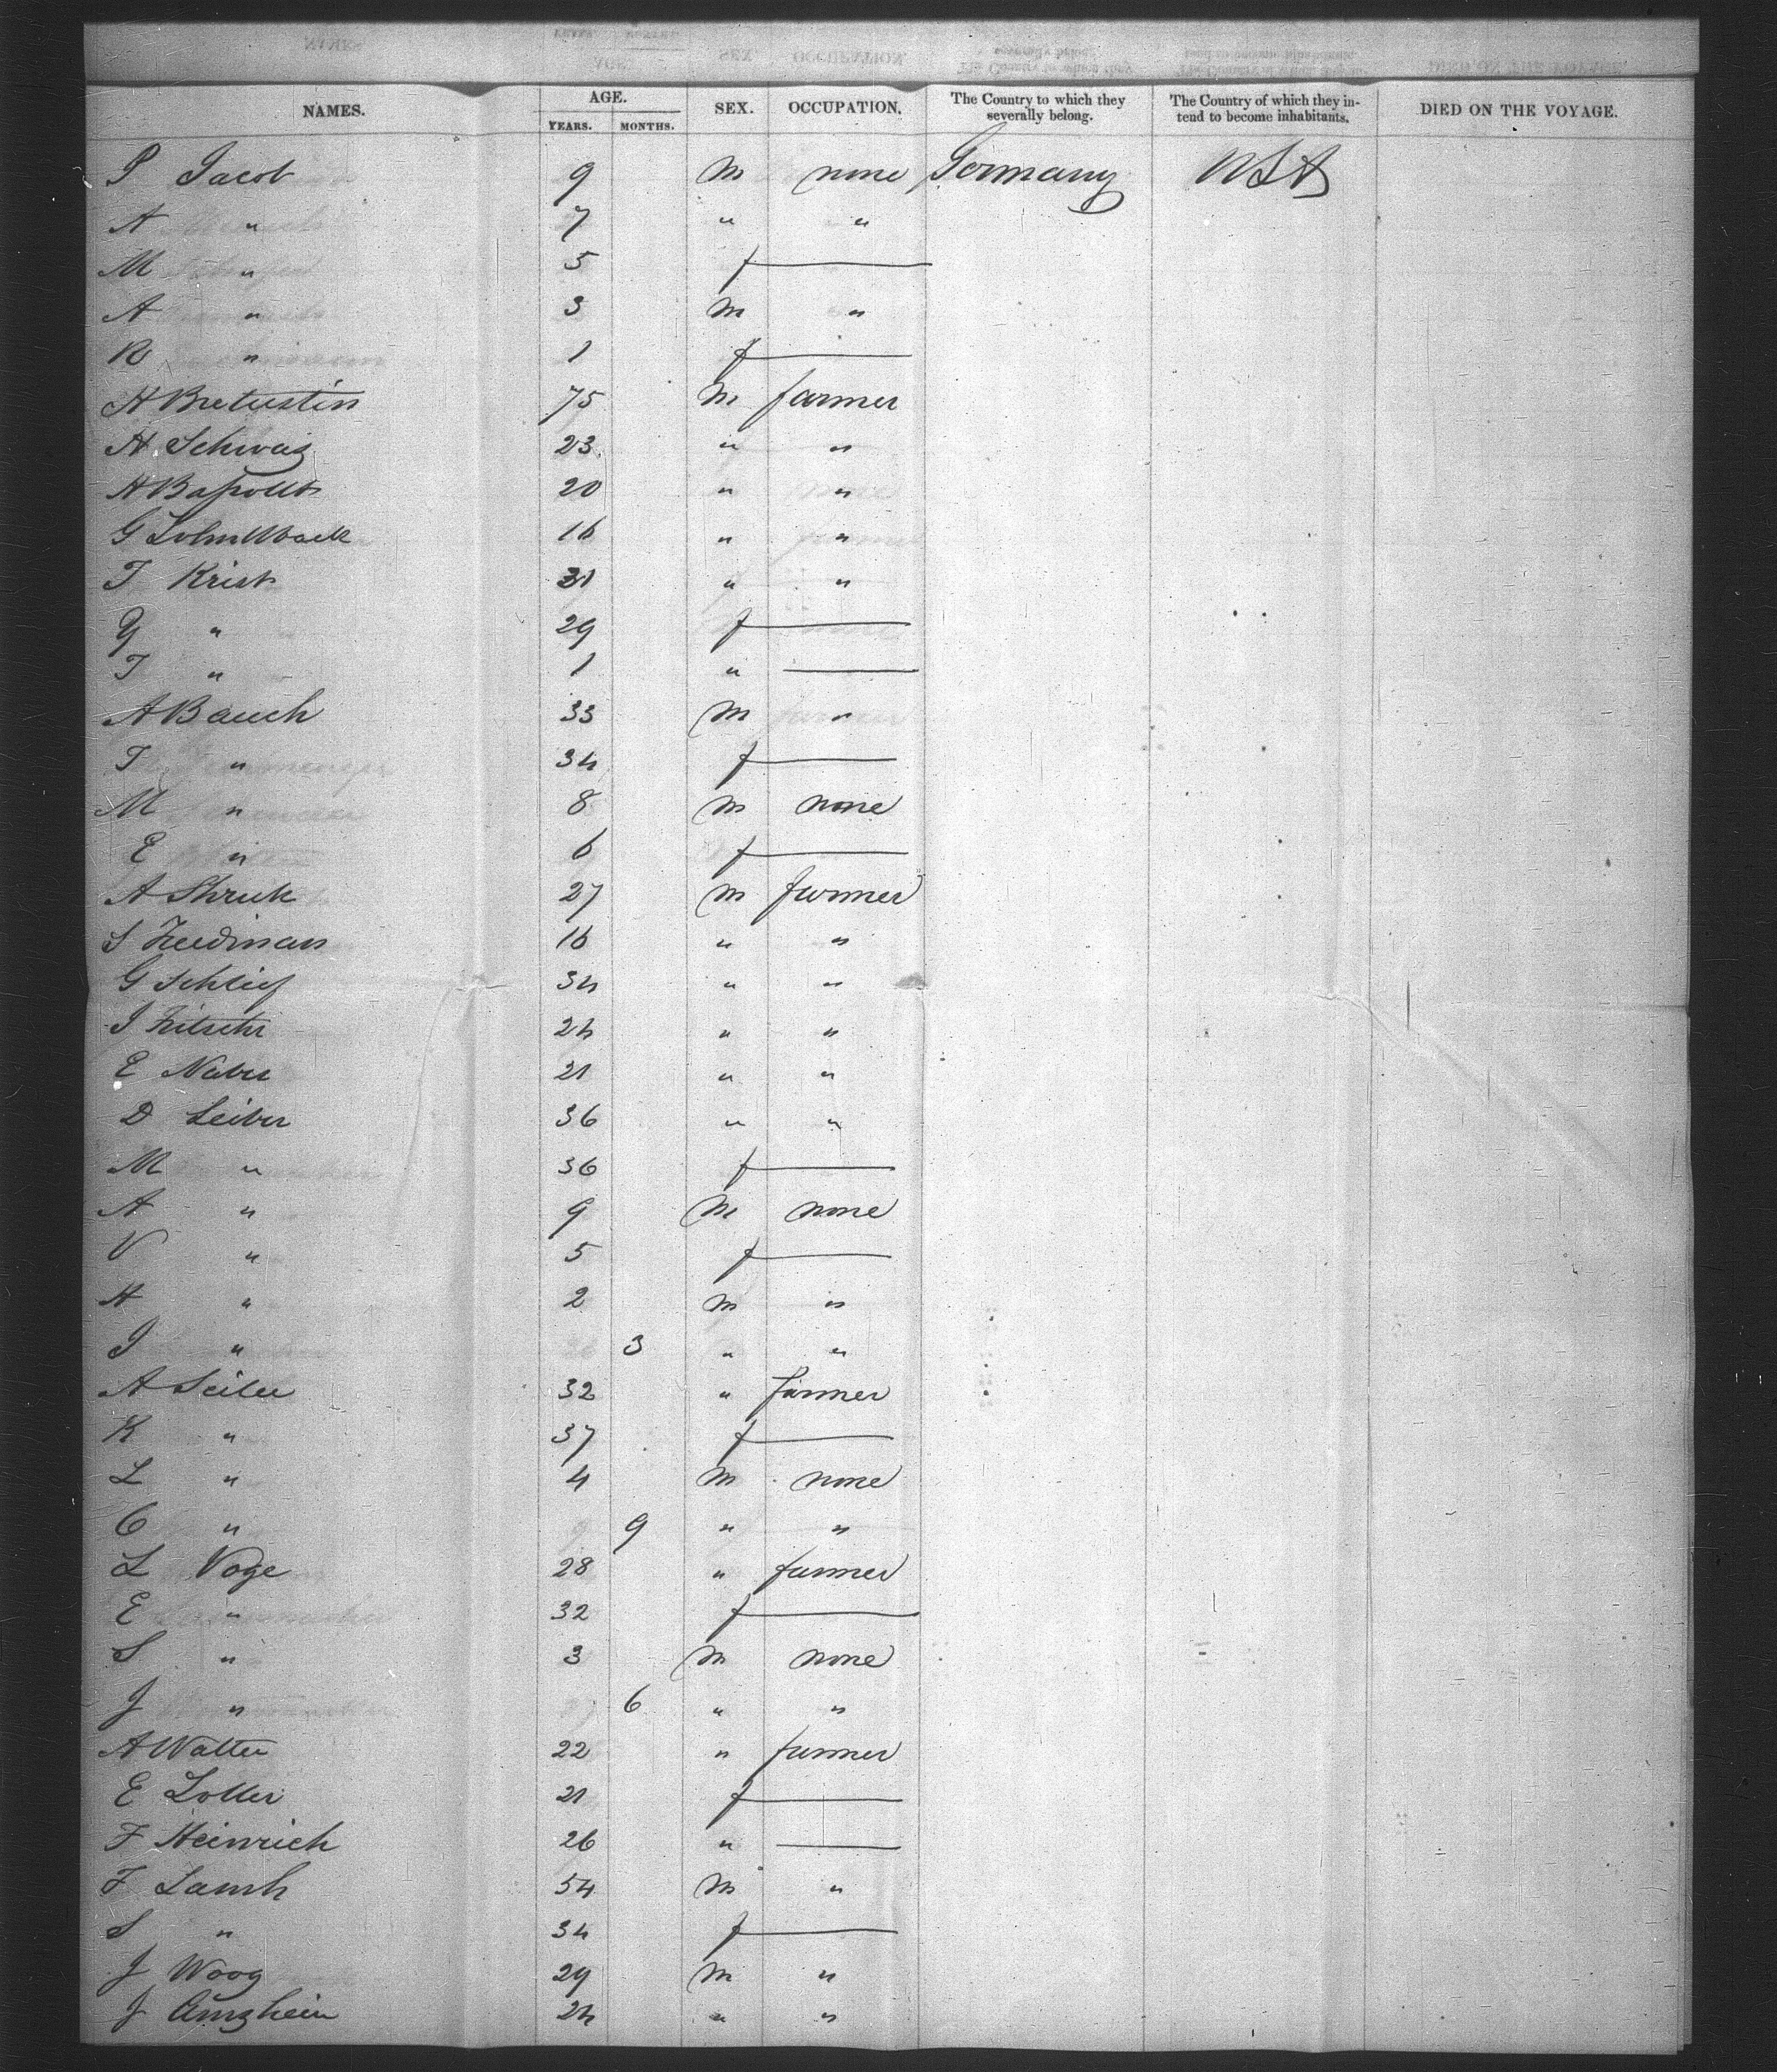 NAMES. AGE. SEX. OCCUPATION. The Country to which they severally belong. The Country of which they intend to become inhabitants. DIED ON THE VOYAGE.
YEARS. MONTHS.
P Jacob 9 m none Germany USA
A " 7 " "
M " 5 f —
A " 3 m "
R " 1 f —
H Bretustin 75 m farmer
H Schwaz 23 " "
H 20 " "
G 16 " "
T Krist 31 " "
G " 29 f —
T " 1 " —
A Bauch 33 m "
T " 34 f —
M " 8 m none
E " 6 f —
A Shruk 27 m farmer
S 16 " "
G Schleif 34 " "
I 24 " "
E Naber 21 " "
D Leiber 36 " "
M " 36 f —
A " 9 m none
V " 5 f —
H " 2 m "
I " 3 " "
A Seiler 32 " farmer
K " 37 f —
L " 4 m none
C " 9 " "
L Voge 28 " farmer
E " 32 f —
S " 3 m none
J " 6 " "
A Walter 22 " farmer
E Loller 21 f —
F Heinrich 26 " —
F Lamh 54 m "
S " 34 f —
J Woog 29 m "
J Amzhein 24 " "